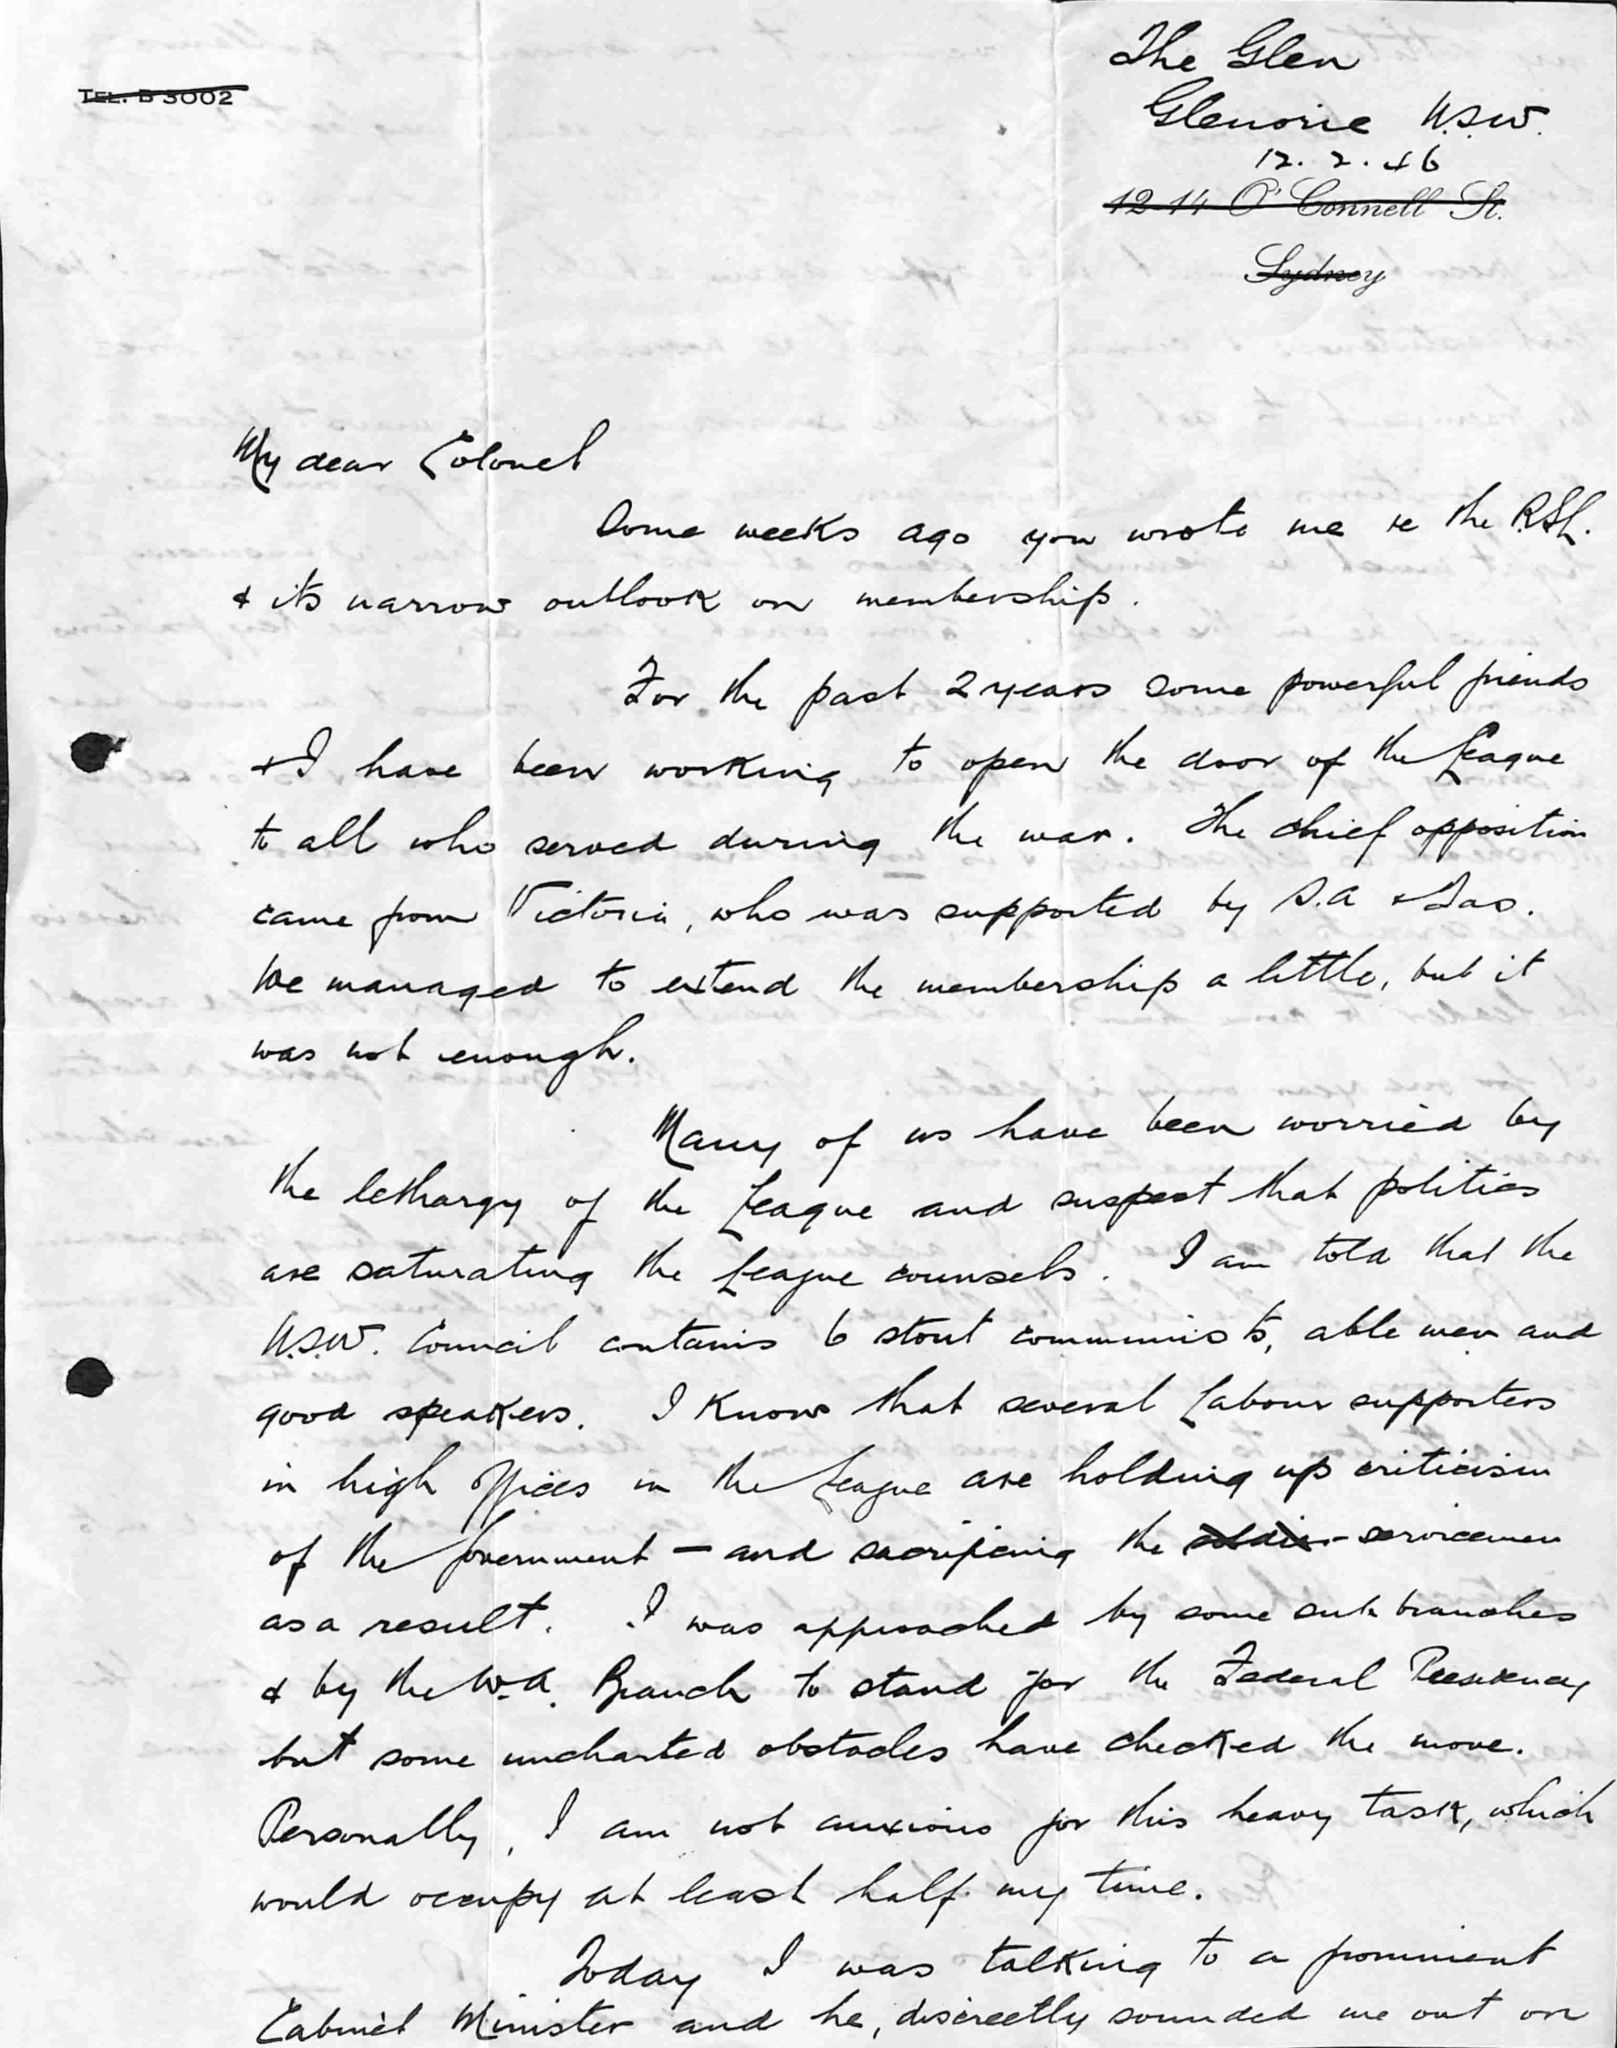 The Glen
TEL. B 3002
Glenorie N.S.W.
12. 2. 46
12-14 O'Connell St.
Sydney
My dear Colonel
Some weeks ago you wrote me re the R.S.L.
& its narrow outlook on membership.
For the past 2 years some powerful friends
& I have been working to open the door of the League
to all who served during the war. The chief opposition
came from Victoria, who was supported by S.A & Tas.
We managed to extend the membership a little, but it
was not enough.
Many of us have been worried by
the lethargy of the League and suspect that politics
are saturating the League counsels. I am told that the
N.S.W. Council contains 6 stout communists, able men and
good speakers. I know that several Labour supporters
in high offices in the League are holding up criticism
of the Government — and sacrificing the servicemen
as a result. I was approached by some sub branches
& by the W.A. Branch to stand for the Federal Presidency
but some uncharted obstacles have checked the move.
Personally, I am not anxious for this heavy task, which
would occupy at least half my time.
Today I was talking to a prominent
Cabinet Minister and he, discreetly sounded me out on